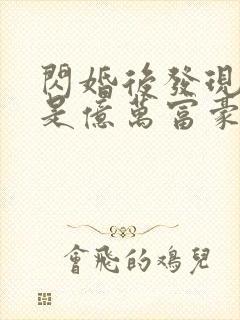 閃婚後發現
是億萬富豪
會飛的鴻兒